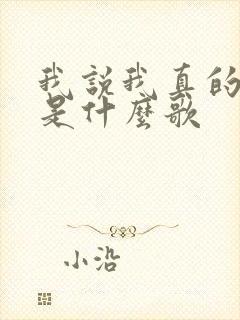 我說我真的
是什麼歌
小沿